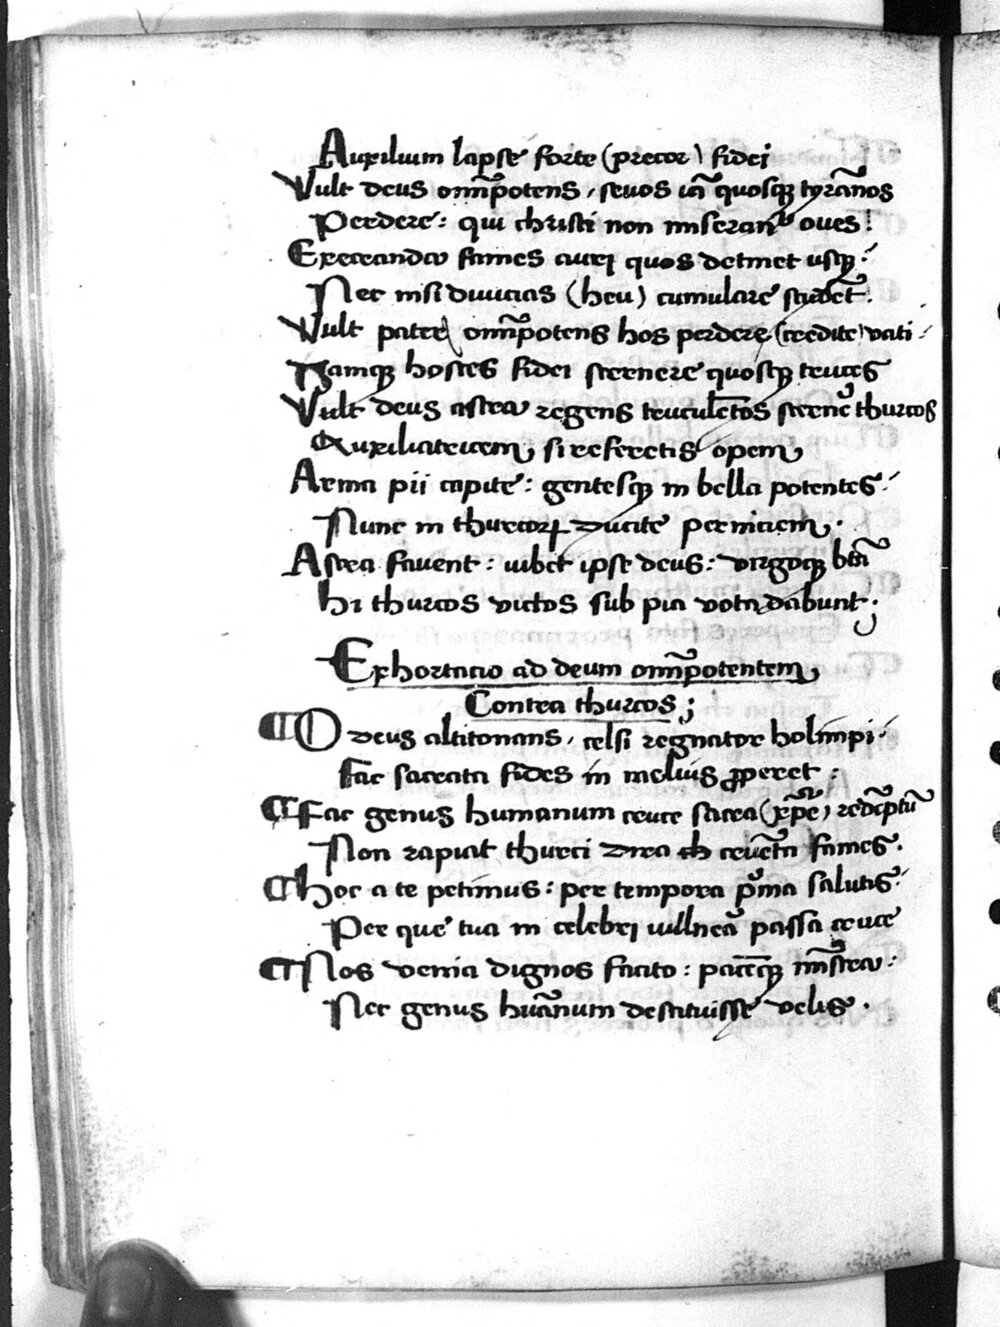 Auxilium lapse forte (precor) fidei
Vult deus om̄ipotens, seuos iā quosqꝫ tyrānos
Perdere: qui christi non miseran oues!
Execranda fames auri quos detinet usqꝫ:
Nec nisi diuicias (heu) cumulare student.
Vult pater om̄ipotens hos perdere (credite) vati:
Namqꝫ hostes fidei sternere quosqꝫ truces
Vult deus astra regens truculētos sternē thurcos
Auxiliatricem si refertis opem
Arma pii capite: gentesqꝫ in bella potentes:
Nunc in thurcoꝝ ducite perniciem.
Astra fauent: iubet ipse deus: virgoqꝫ btā
Hi thurcos victos sub pia vota dabunt;
Exhortacio ad deum om̄ipotentem
Contra thurcos;
¶ O deus altitonans, celsi regnator holimpi:
Fac sacrata fides in melius ꝓperet:
¶ Fac genus humanum cruce sacra (xp̄e) redēptū
Non rapiat thurci dira cruēta fames.
¶ Hoc a te petimus: per tempora p̄ma salutis:
Per que tua in celebri uulnera passa cruce
¶ Nos venia dignos facito: parcqꝫ
Nec genus hūanum destituisse velis.